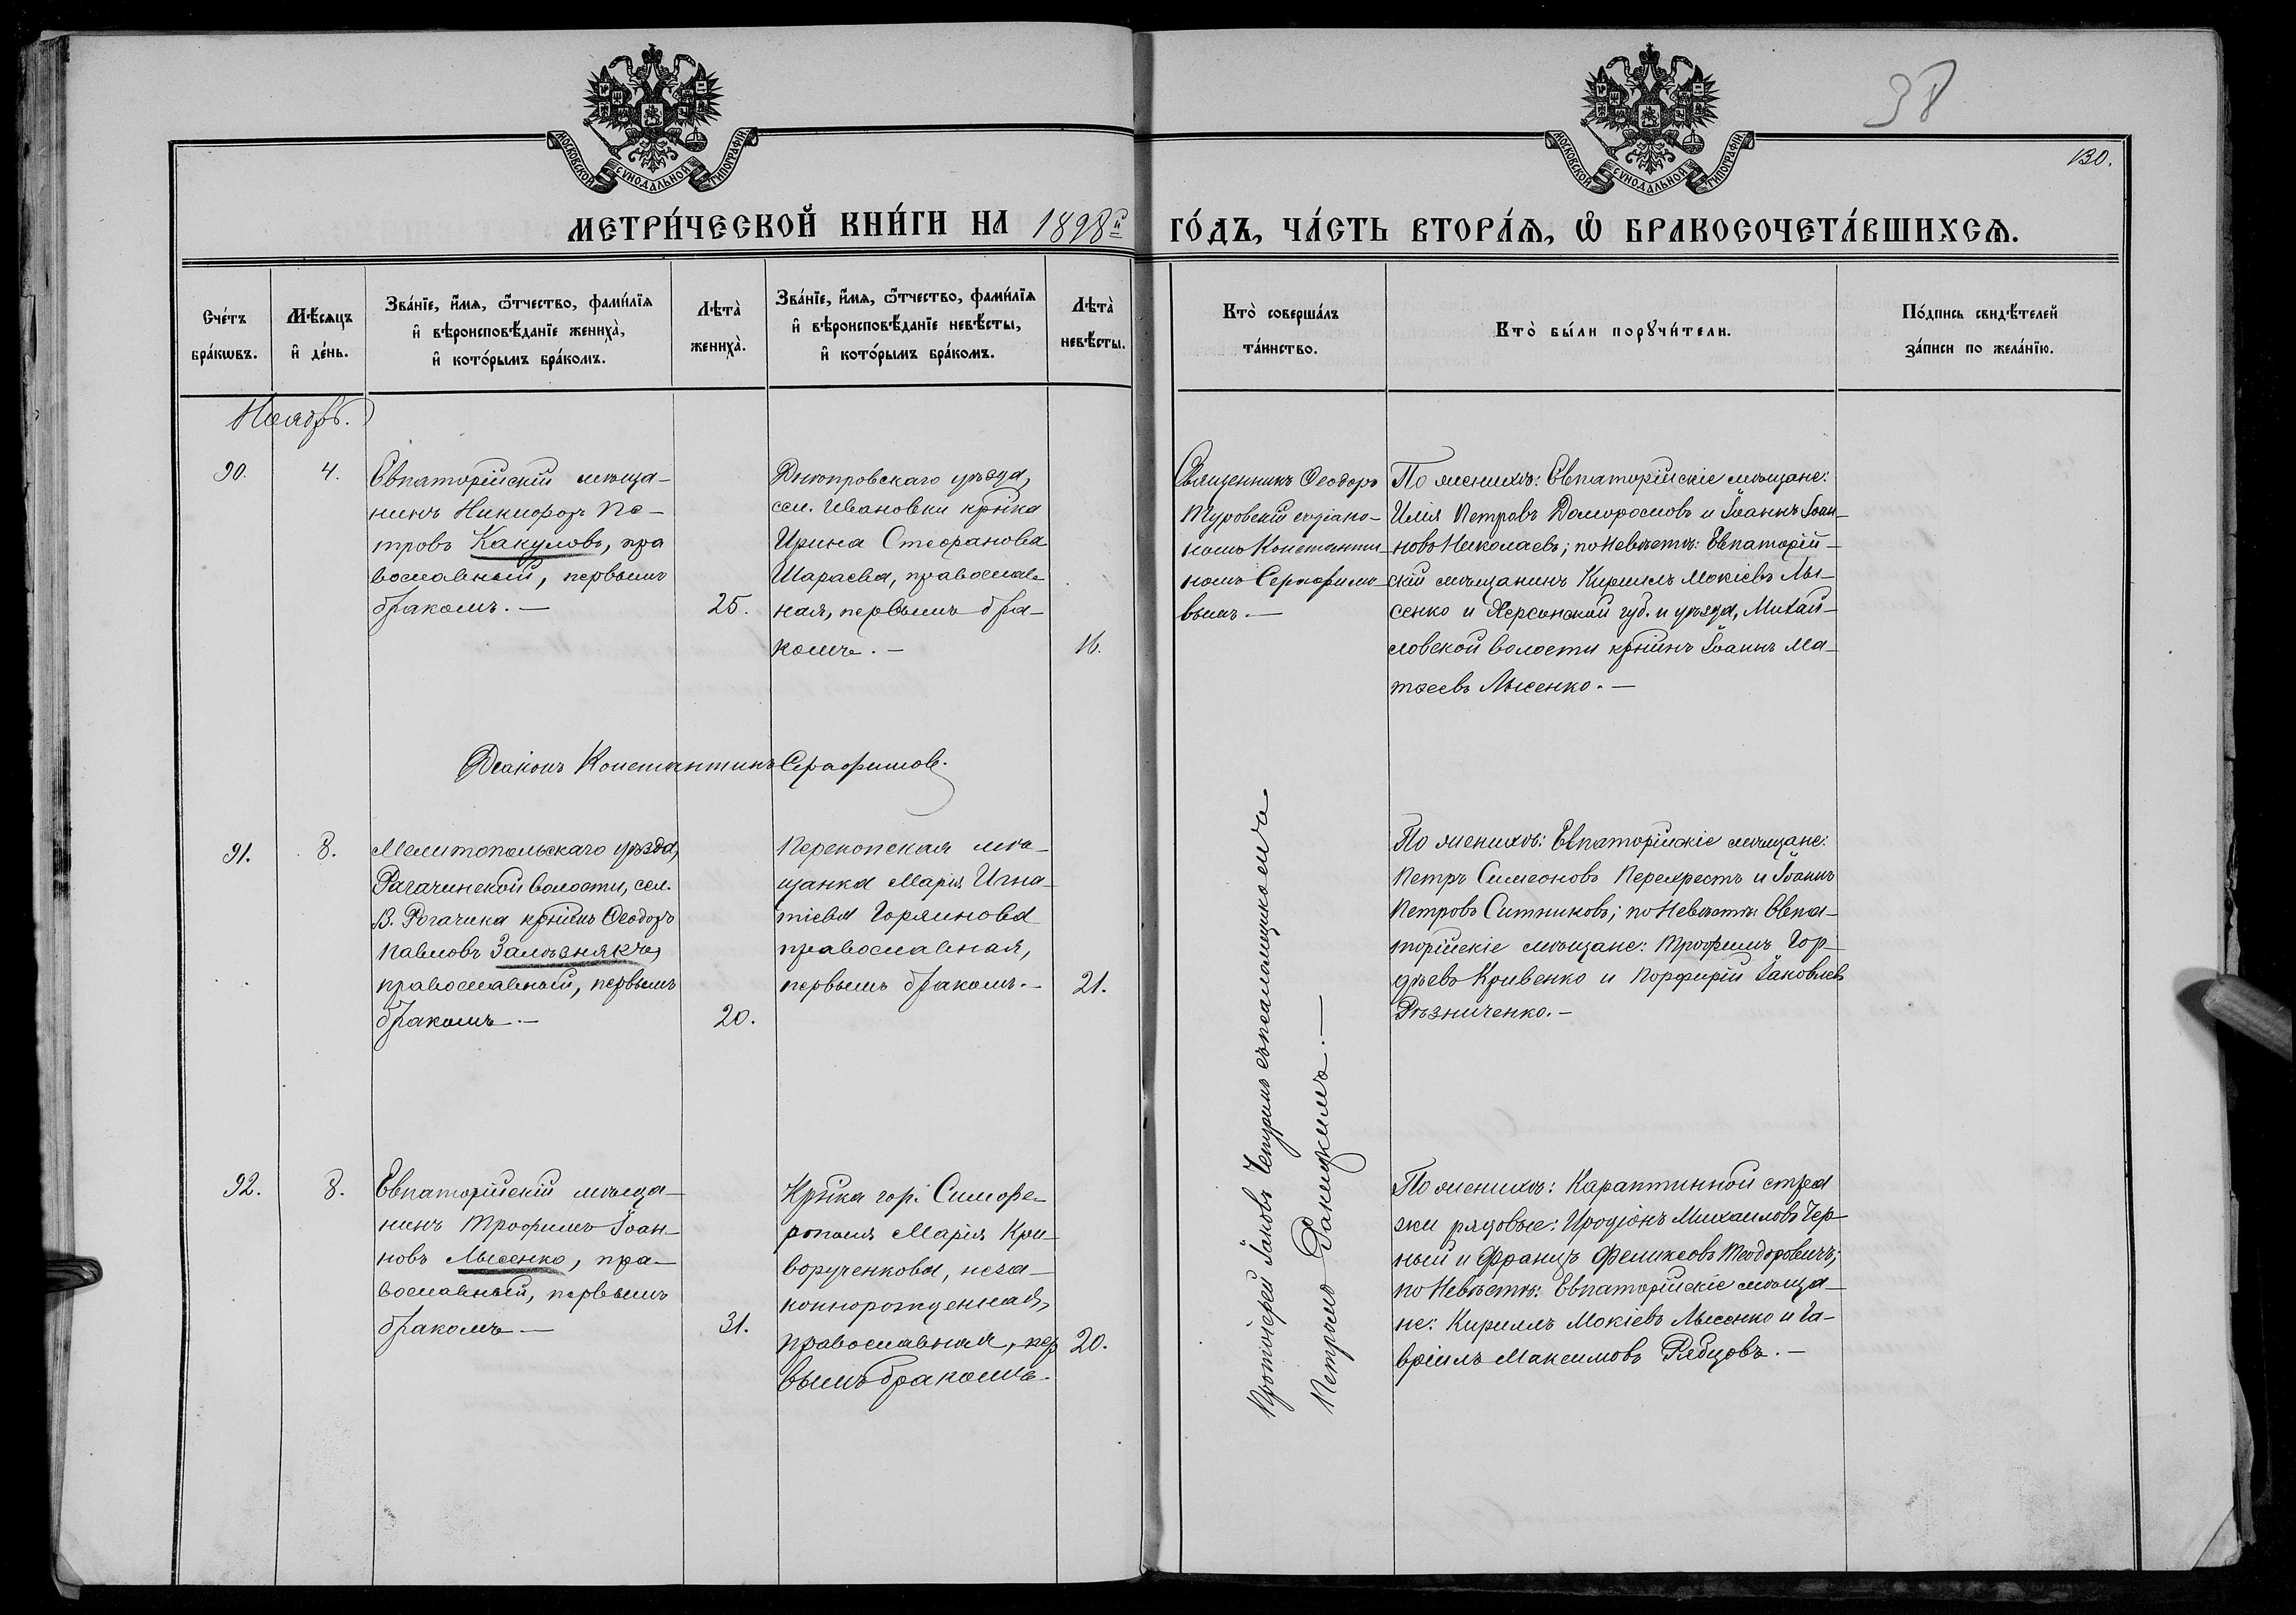 МОСКОВСКОЙ СѴНОДАЛЬНОЙ ТИПОГРАФІИ
МОСКОВСКОЙ СѴНОДАЛЬНОЙ ТИПОГРАФІИ
38
130.
МЕТРИ́ЧЕСКОЙ КНИ́ГИ НА 1898й ГО́ДЪ, ЧА́СТЬ ВТОРА́Я, Ѡ БРАКОСОЧЕТА́ВШИХСЯ.
Сче́тъ
бра́кѡвъ.
Мѣ́сяцъ
и҆ де́нь.
Зва́нїе, и҆́мя, ѻ҆́тчество, фами́лїя
и҆ вѣроисповѣ́данїе жениха̀,
и҆ кото́рымъ бра́комъ.
Лѣта̀
жениха̀.
Зва́нїе, и҆́мя, ѻ҆́тчество, фами́лїя
и҆ вѣроисповѣ́данїе невѣ́сты,
и҆ кото́рымъ бра́комъ.
Лѣта̀
невѣ́сты.
Кто̀ соверша́лъ
та́инство.
Кто̀ бы́ли порꙋчи́тели.
По́дпись свидѣ́телей
за́писи по жела́нїю.
Ноябрь.
90.
4.
Евпаторійскій мѣща-
нинъ Никифоръ Пе-
тровъ Какуловъ, пра
вославный, первымъ
бракомъ. —
25.
Днѣпровскаго уѣзда,
сел. Ивановки крѣка
Ирина Стефанова
Шараева, православ-
ная, первымъ бра-
комъ. —
16.
Священникъ Ѳеодоръ
Туровскій съ діако-
номъ Константи
номъ Серафимо-
вымъ. —
По женихѣ: Евпаторійскіе мѣщане:
Илія Петровъ Доморословъ и Іоаннъ Іоан-
новъ Николаевъ; по невѣстѣ: Евпаторій-
скій мѣщанинъ Кириллъ Мокіевъ Лы-
сенко и Херсонской губ. и уѣзда, Михай-
ловской волости крнинъ Іоаннъ Ма-
тѳеевъ Лысенко. —
Діаконъ Константинъ Серафимов.
91.
8.
Мелитопольскаго уѣзда,
Рагачинской волости, сел.
В. Рогачика крнинъ Ѳеодоръ
Павловъ Залѣснякъ,
православный, первымъ
бракомъ. —
20.
Перекопская мѣ-
щанка Марія Игна-
тіева Горяинова
православная,
первымъ бракомъ. —
21.
Протоіерей Іаковъ Чепуринъ съ псаломщикомъ
Петромъ Ракицкимъ. —
По женихѣ: Евпаторійскіе мѣщане:
Петръ Симеоновъ Перехрестъ и Іоаннъ
Петровъ Ситниковъ; по невѣстѣ: Евпа-
торійскіе мѣщане: Трофимъ Гор-
дѣевъ Кривенко и Порфирій Іаковлевъ
Рѣзниченко. —
92.
8.
Евпаторійскій мѣща-
нинъ Трофимъ Іоан-
новъ Лысенко, пра-
вославный, первымъ
бракомъ —
31.
Крѣка гор. Симфе-
рополя Марія Кри-
ворученкова, неза-
коннорожденная,
православная, пер
вымъ бракомъ.
20.
По женихѣ: Карантинной стра
жи рядовые: Иродіонъ Михаиловъ Чер-
ный и Францъ Феликсовъ Теодоровичъ;
по невѣстѣ: Евпаторійскіе мѣща-
не: Кириллъ Мокіевъ Лысенко и Га-
вріилъ Максимовъ Рябцовъ. —